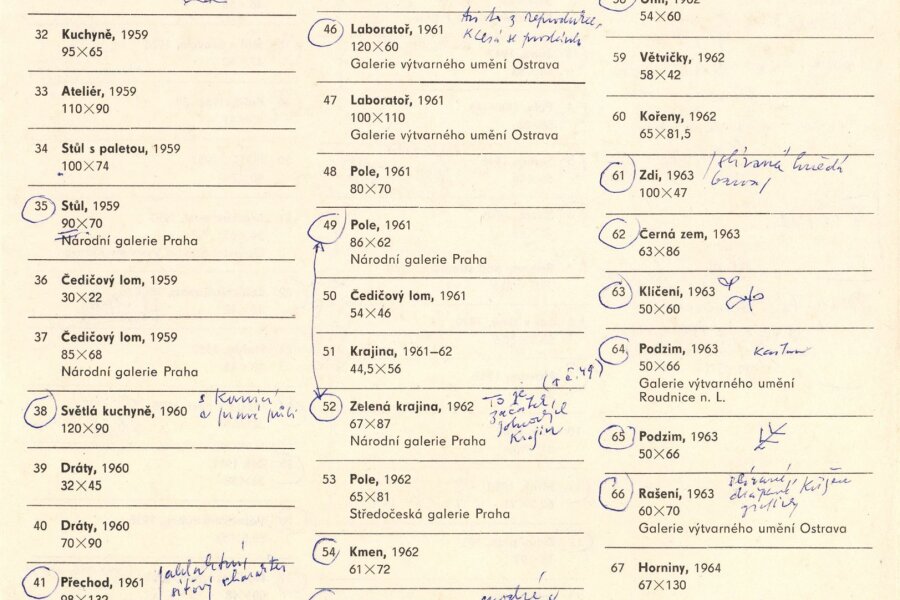 32 Kuchyně, 1959
95×65
33 Ateliér, 1959
110×90
34 Stůl s paletou, 1959
100×74
35 Stůl, 1959
90×70
Národní galerie Praha
36 Čedičový lom, 1959
30×22
37 Čedičový lom, 1959
85×68
Národní galerie Praha
38 Světlá kuchyně, 1960
120×90
39 Dráty, 1960
32×45
40 Dráty, 1960
70×90
41 Přechod, 1961
98×132
46 Laboratoř, 1961
120×60
Galerie výtvarného umění Ostrava
47 Laboratoř, 1961
100×110
Galerie výtvarného umění Ostrava
48 Pole, 1961
80×70
49 Pole, 1961
86×62
Národní galerie Praha
50 Čedičový lom, 1961
54×46
51 Krajina, 1961–62
44,5×56
52 Zelená krajina, 1962
67×87
Národní galerie Praha
(s č. 49)
To je
krajin
53 Pole, 1962
65×81
Středočeská galerie Praha
54 Kmen, 1962
61×72
modré
54×60
59 Větvičky, 1962
58×42
60 Kořeny, 1962
65×81,5
61 Zdi, 1963
100×47
hnědá
barva
62 Černá zem, 1963
63×86
63 Klíčení, 1963
50×60
64 Podzim, 1963
50×66
Galerie výtvarného umění
Roudnice n. L.
65 Podzim, 1963
50×66
66 Rašení, 1963
60×70
Galerie výtvarného umění Ostrava
67 Horniny, 1964
67×130